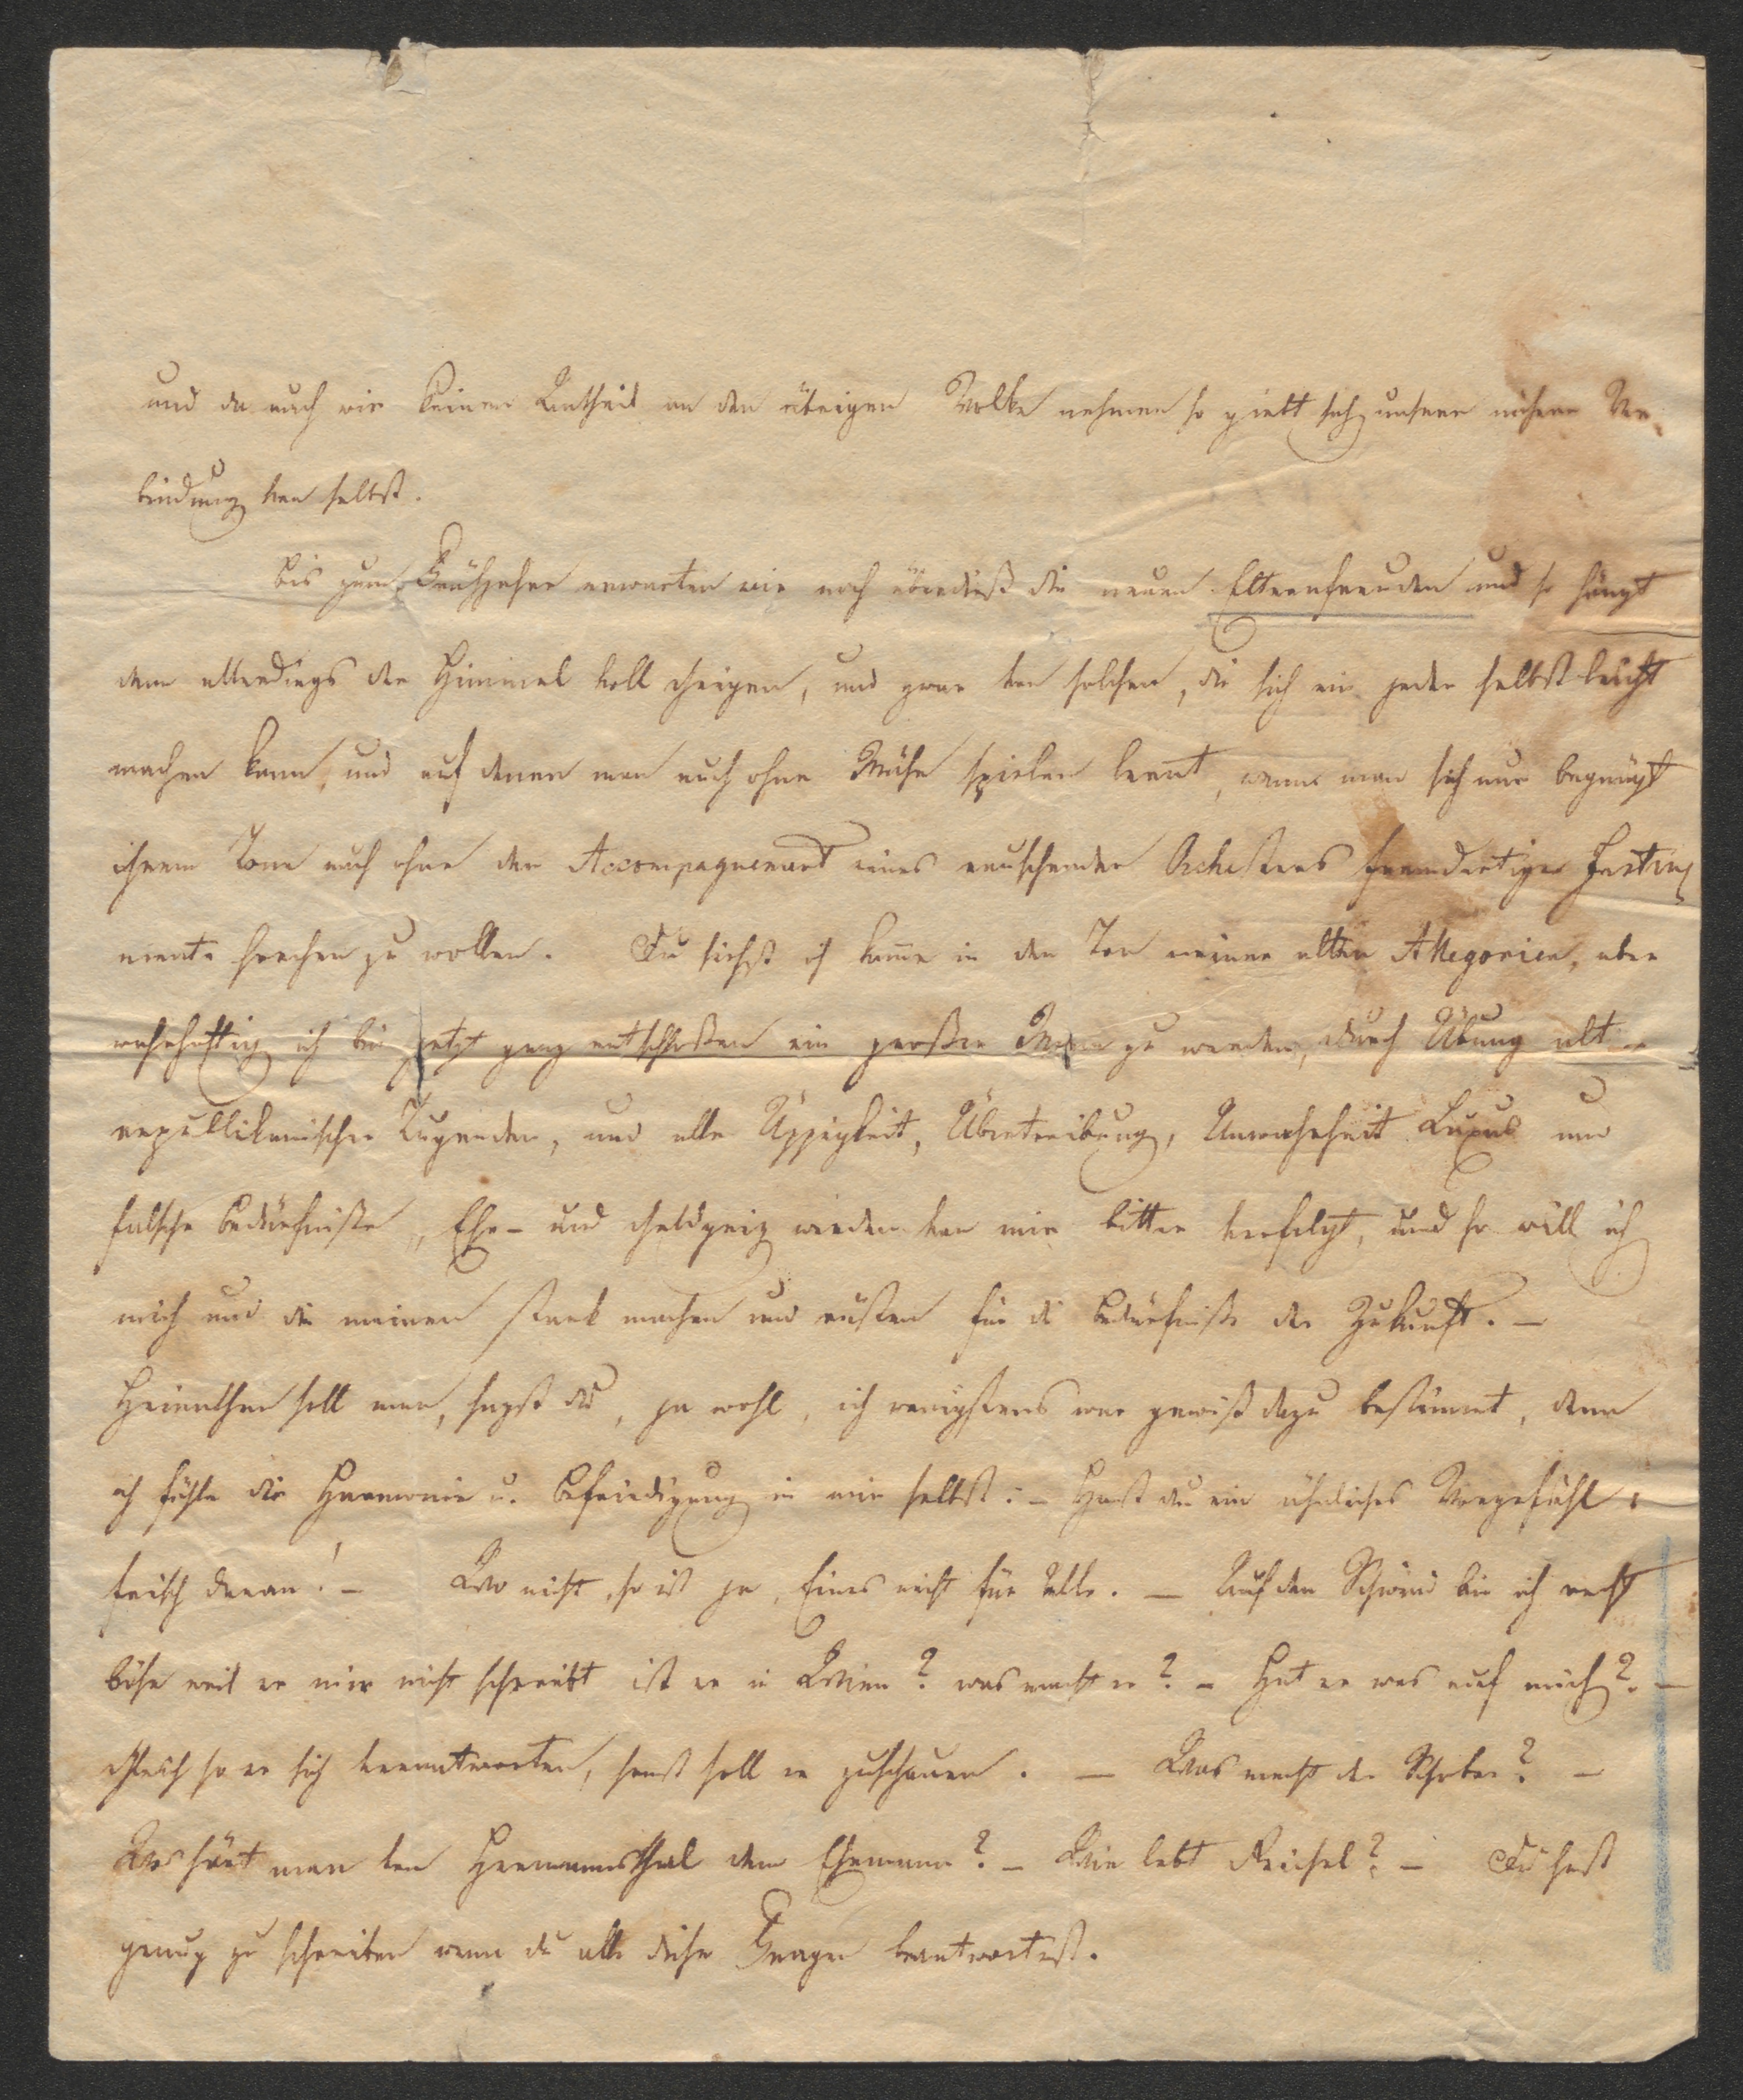 und da auch wir keinen Antheil an den übrigen Volke nehmen so giebt sich unsere nähere Ver-
bindung von selbst.
Bis zum Frühjahre erwarten wir noch überdieß die neuen Elternfreuden und so hängt
denn allerdings der Himmel voll Geigen, und zwar von solchen, die sich ein jeder selbst leicht
machen kann, und auf denen man auch ohne Mühe spielen lernt, wenn man sich nur begnügt
ihrem Tone auch ohne der Accompagnement eines rauschenden Orchesters fremdartiger Instru
mente horchen zu wollen. Du siehst ich komme in den Ton meiner alten Allegorien, aber
wahrhaftig ich bin jetzt ganz entschloßen ein großer Mann zu werden, durch Übung alt-
republikanischer Tugenden, und alle Üppigkeit, Übertreibung, Unwahrheit Luxus und
falsche Bedürfniße, Ehr- und Geldgeiz werden von mir bitter verfolgt, und so will ich
mich und die meinen stark machen und rüsten für die Bedürfniße der Zukunft. –
Heirathen soll man, sagst du, ja wohl, ich wenigstens war gewiß dazu bestimmt, denn
ich fühle die Harmonie u. Befriedigung in mir selbst: – Hast du ein ähnliches Vorgefühl:
frisch daran! – Wo nicht, so ist ja Eines nicht für Alle. – Auf den Schwind bin ich recht
böse weil er mir nicht schreibt ist er in Wien? was macht er? – Hat er was auf mich? –
Gleich so er sich verantworten, sonst soll er zuschauen. – Was macht der Schober? –
Was hört man von Hermannsthal dem Ehemann? – Wie lebt Reichel? – Du hast
genug zu schreiben wenn du alle diese Fragen beantwortest.